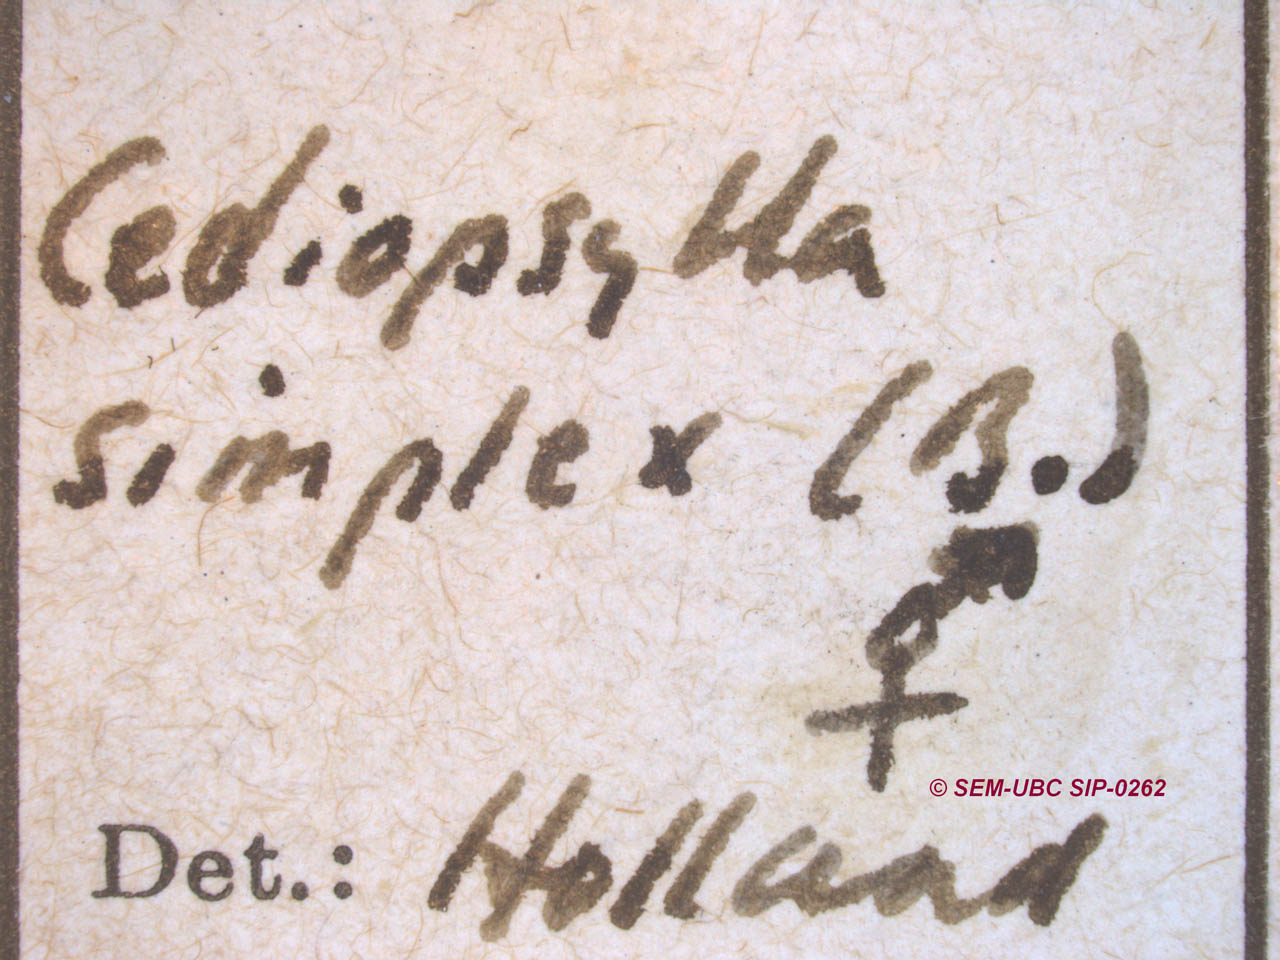 Cediopsylla
simplex (B.)
⚥
© SEM-UBC SIP-0262
Det.: Holland